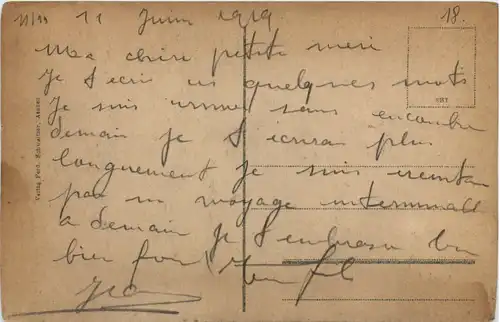 11 Juin 1919
18.
Ma chère petite mère
Je t'écris ces quelques mots
Je suis arrivé sans encombre
demain je t'écrirai plus
longuement je suis éreinté
par un voyage interminable
a demain je t'embrasse bien
bien fort ton fils
Jean